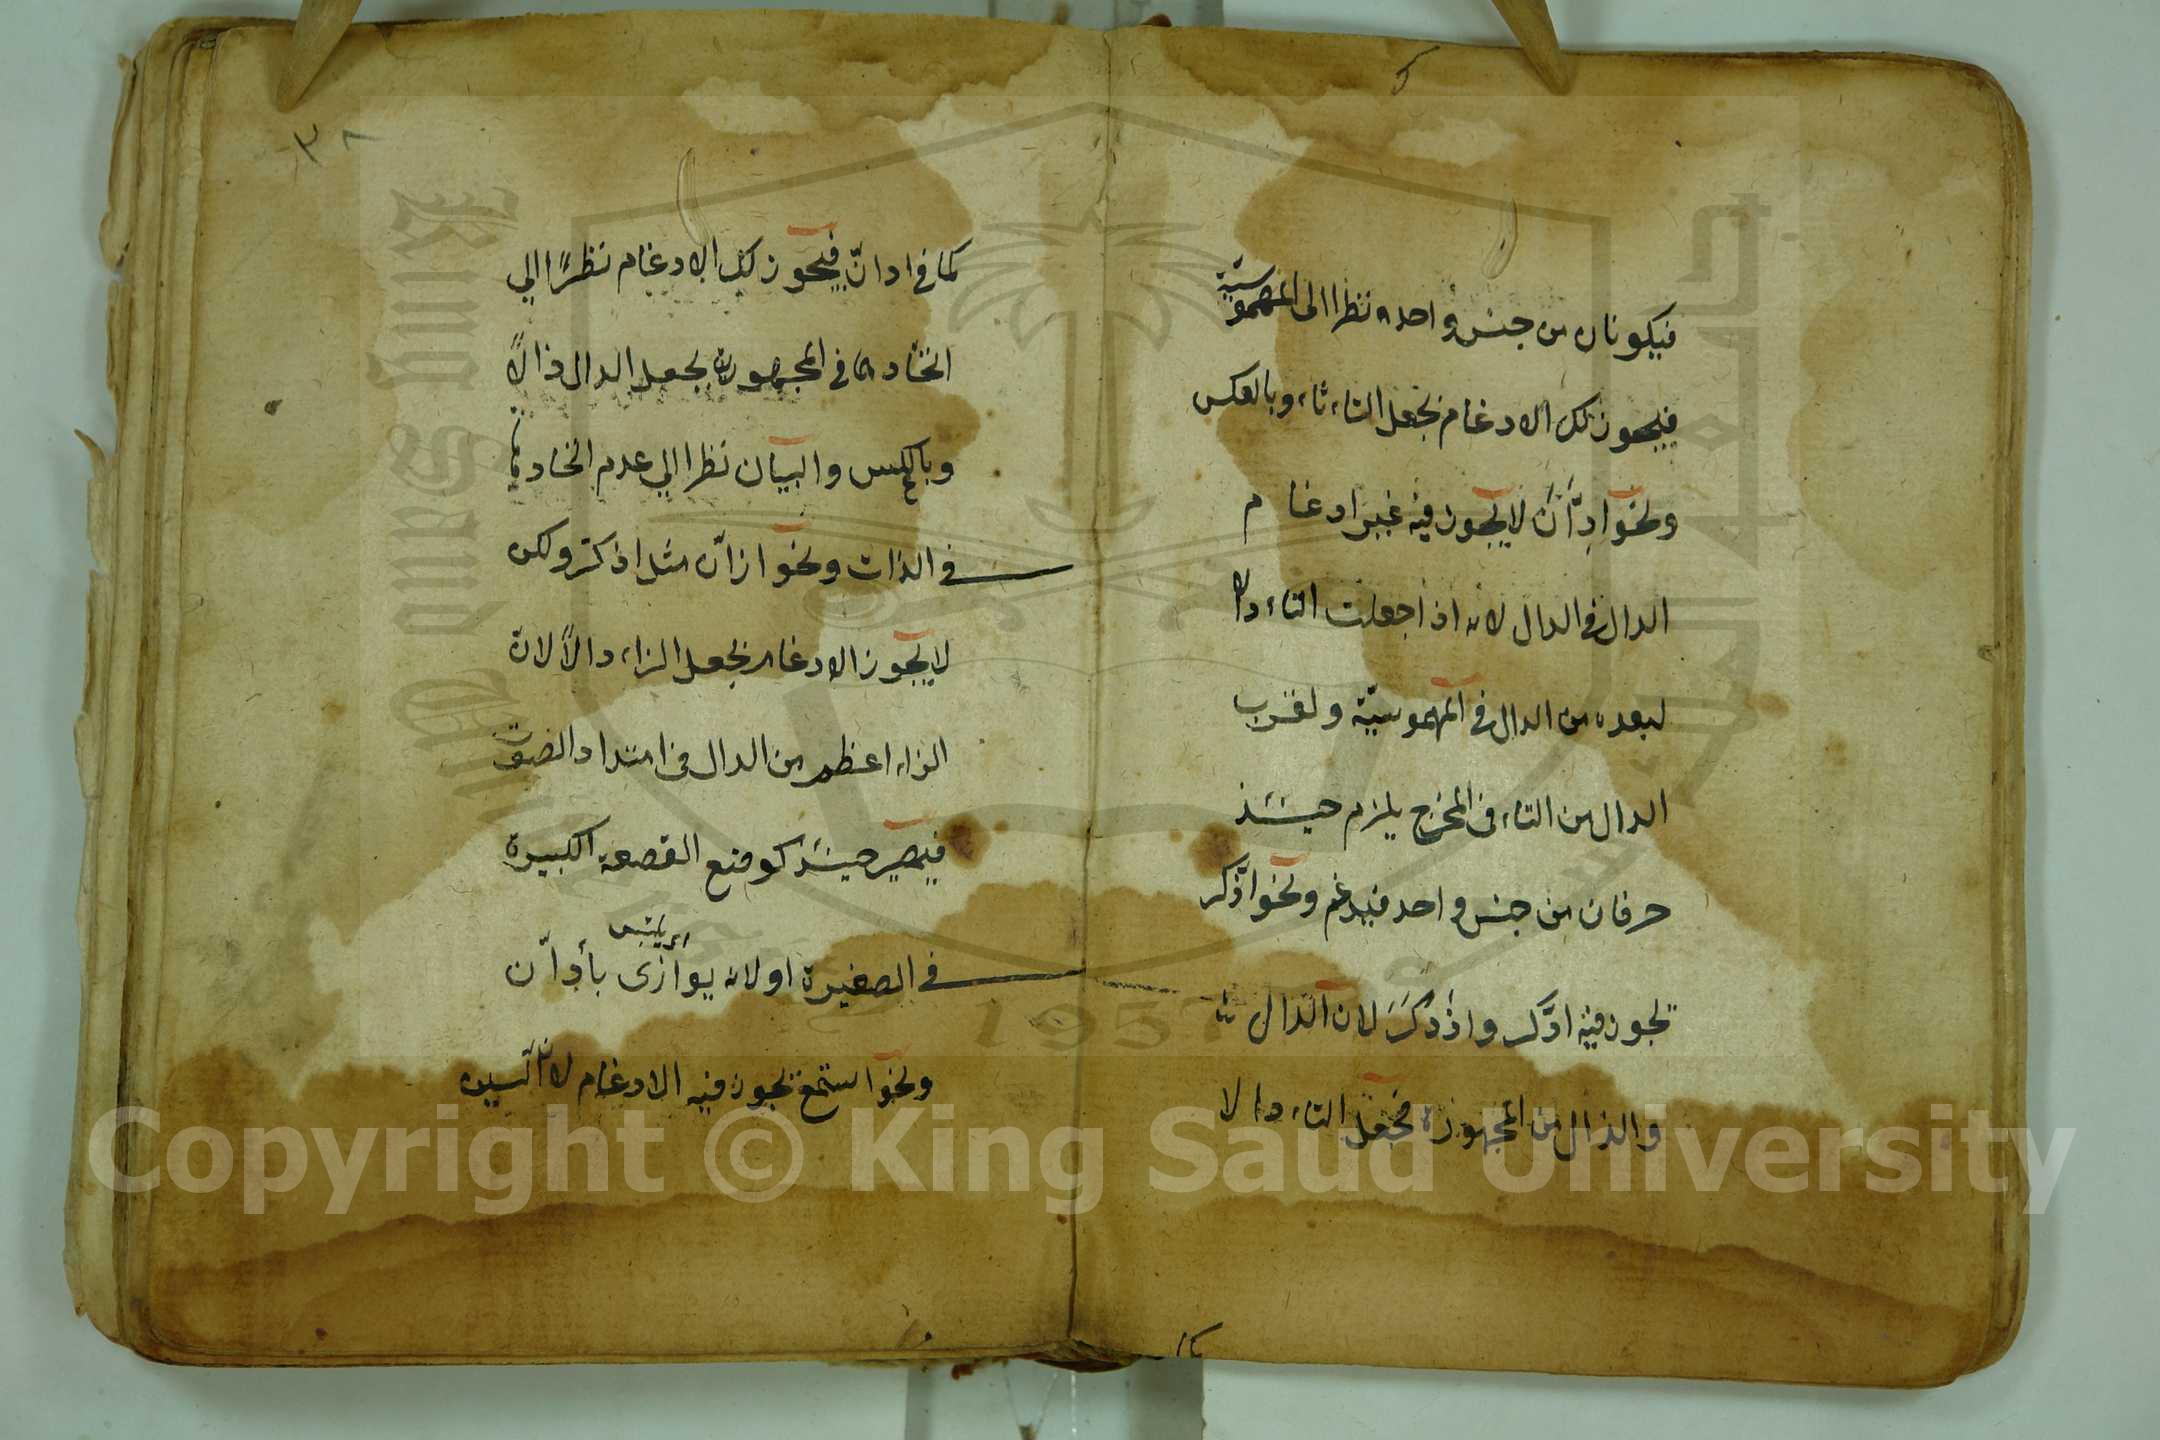 فيكونان من جنس واحد نظرا الى المهموسية
فيجوز لك الادغام بجعل التاء ثاء وبالعكس
ونحو ادّان لا يجوز فيه غير ادغام
الدال في الدال لانه اذا جعلت التاء دالا
لبعده من الدال في المهموسيّة ولقرب
الدال من التاء في المخرج يلزم حينئذ
حرفان من جنس واحد فيدغم ونحو اذّكر
تجوز فيه ادّكر واذدكر لان الدال
والذال من المجهورة فجعل التاء دالا
٣٨
كما في ادانّ فيجوز لك الادغام نظرًا الي
اتحادهما في المجهورية بجعل الدال ذالًا
وبالعكس والبيان نظرا الي عدم اتحادهما
في الذات ونحو ازانّ مثل اذكر ولكن
لا يجوز الادغام بجعل الزاء دالًا لان
الزاء اعظم من الدال في امتداد الصوت
فيصير حينئذ كوضع القصعة الكبيرة
في الصغيرة او لانه يوازى بأدّان
ونحو استمع تجوز فيه الادغام لان السين
King Saud University
جامعة الملك سعود
1957
Copyright © King Saud University